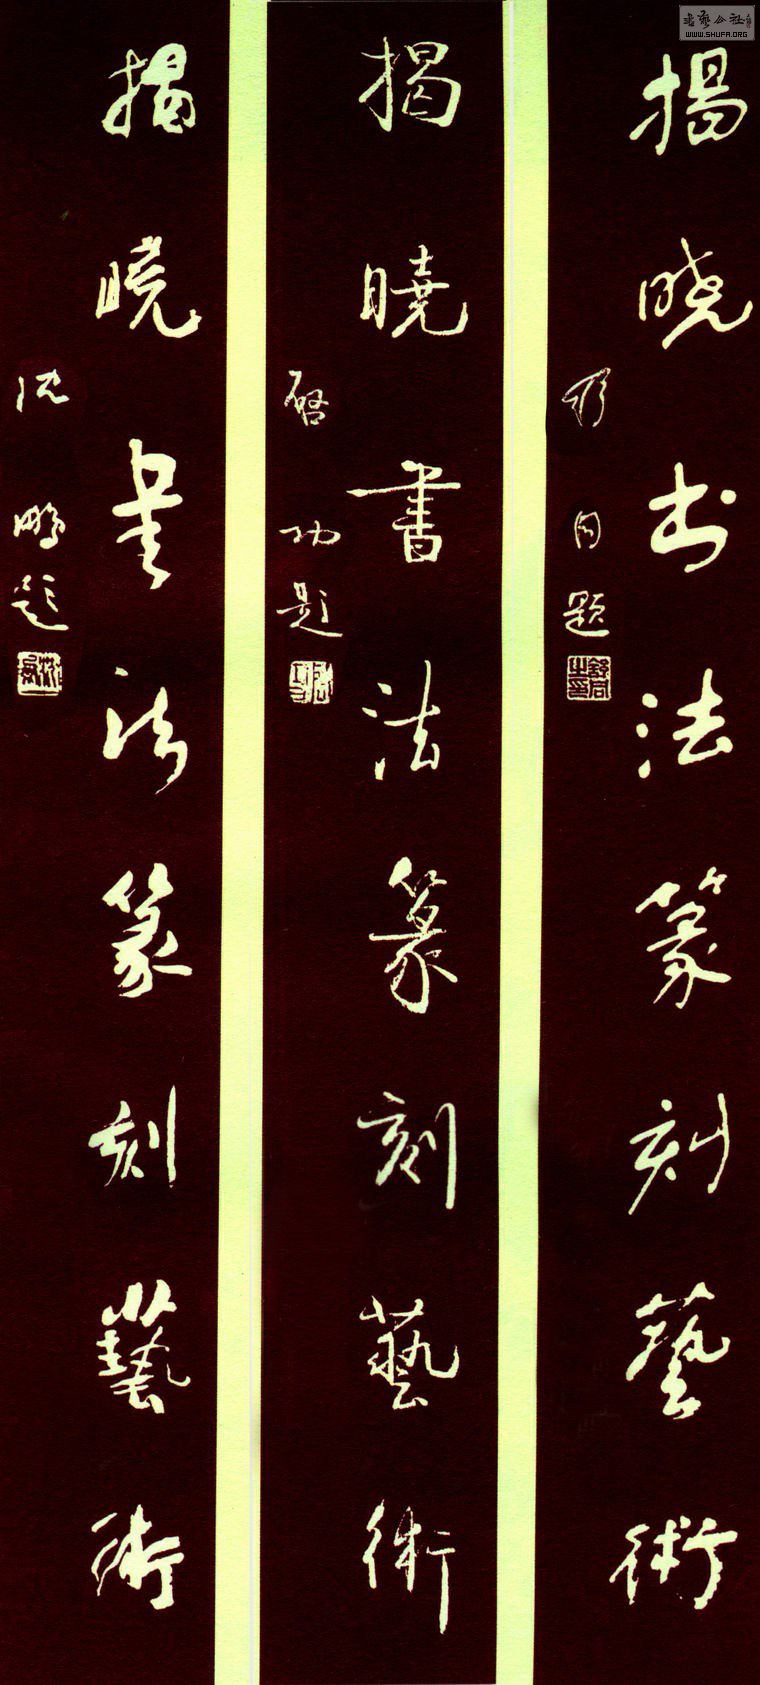 書藝公社
WWW.SHUFA.ORG
揭晓书法篆刻藝術
舒同題
舒同之印
揭曉書法篆刻藝術
啓功題
揭曉書法篆刻藝術
沈鵬題